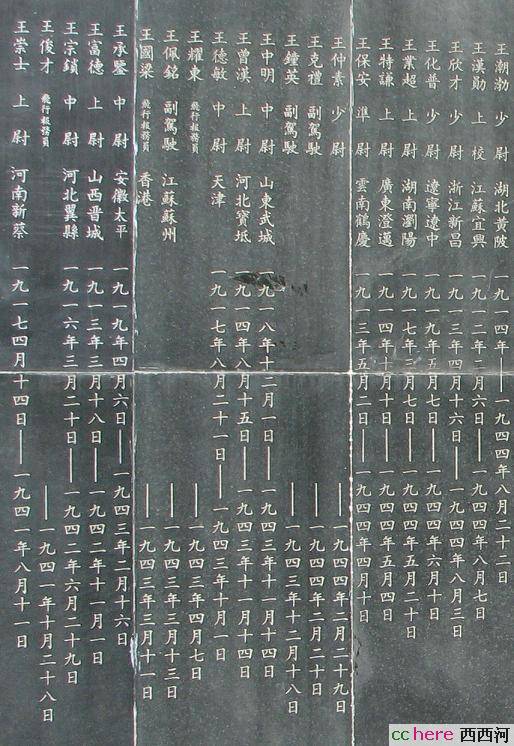 王潮渤 少尉 湖北黃陂 一九一四年——一九四四年八月二十二日
王漢勛 上校 江蘇宜興 一九一二年三月六日——一九四四年八月七日
王欣才 少尉 浙江新昌 一九一三年四月十六日——一九四四年八月三日
王化普 少尉 遼寧遼中 一九一九年五月八日——一九四四年六月十日
王業超 少尉 湖南瀏陽 一九一七年三月七日——一九四四年五月二十日
王特謙 上尉 廣東澄邁 一九一七年十月十一日——一九四四年五月四日
王保安 準尉 雲南鶴慶 一九一三年五月二日——一九四四年四月十日
王仲素 少尉 ——一九四四年二月二十九日
王克禮 副駕駛 ——一九四四年二月二十日
王鐘英 副駕駛 ——一九四三年十二月十八日
王中明 中尉 山東武城 一九一八年十二月一日——一九四三年十一月十四日
王曾漢 上尉 河北寶坻 一九一四年八月十五日——一九四三年十一月十四日
王德敏 中尉 天津 一九一七年八月二十一日——一九四三年十月一日
王耀東 飛行報務員 ——一九四三年四月七日
王佩銘 副駕駛 江蘇蘇州 ——一九四三年三月十三日
王國梁 飛行報務員 香港 ——一九四三年三月十一日
王承鑒 中尉 安徽太平 一九一九年四月六日——一九四三年二月十六日
王富德 上尉 山西晋城 一九一三年三月十八日——一九四二年十一月一日
王宗鎖 中尉 河北冀縣 一九一六年三月二十日——一九四二年六月二十九日
王俊才 飛行報務員 ——一九四一年十月二十八日
王崇士 上尉 河南新蔡 一九一七四月十四日——一九四一年八月十一日
cchere 西西河